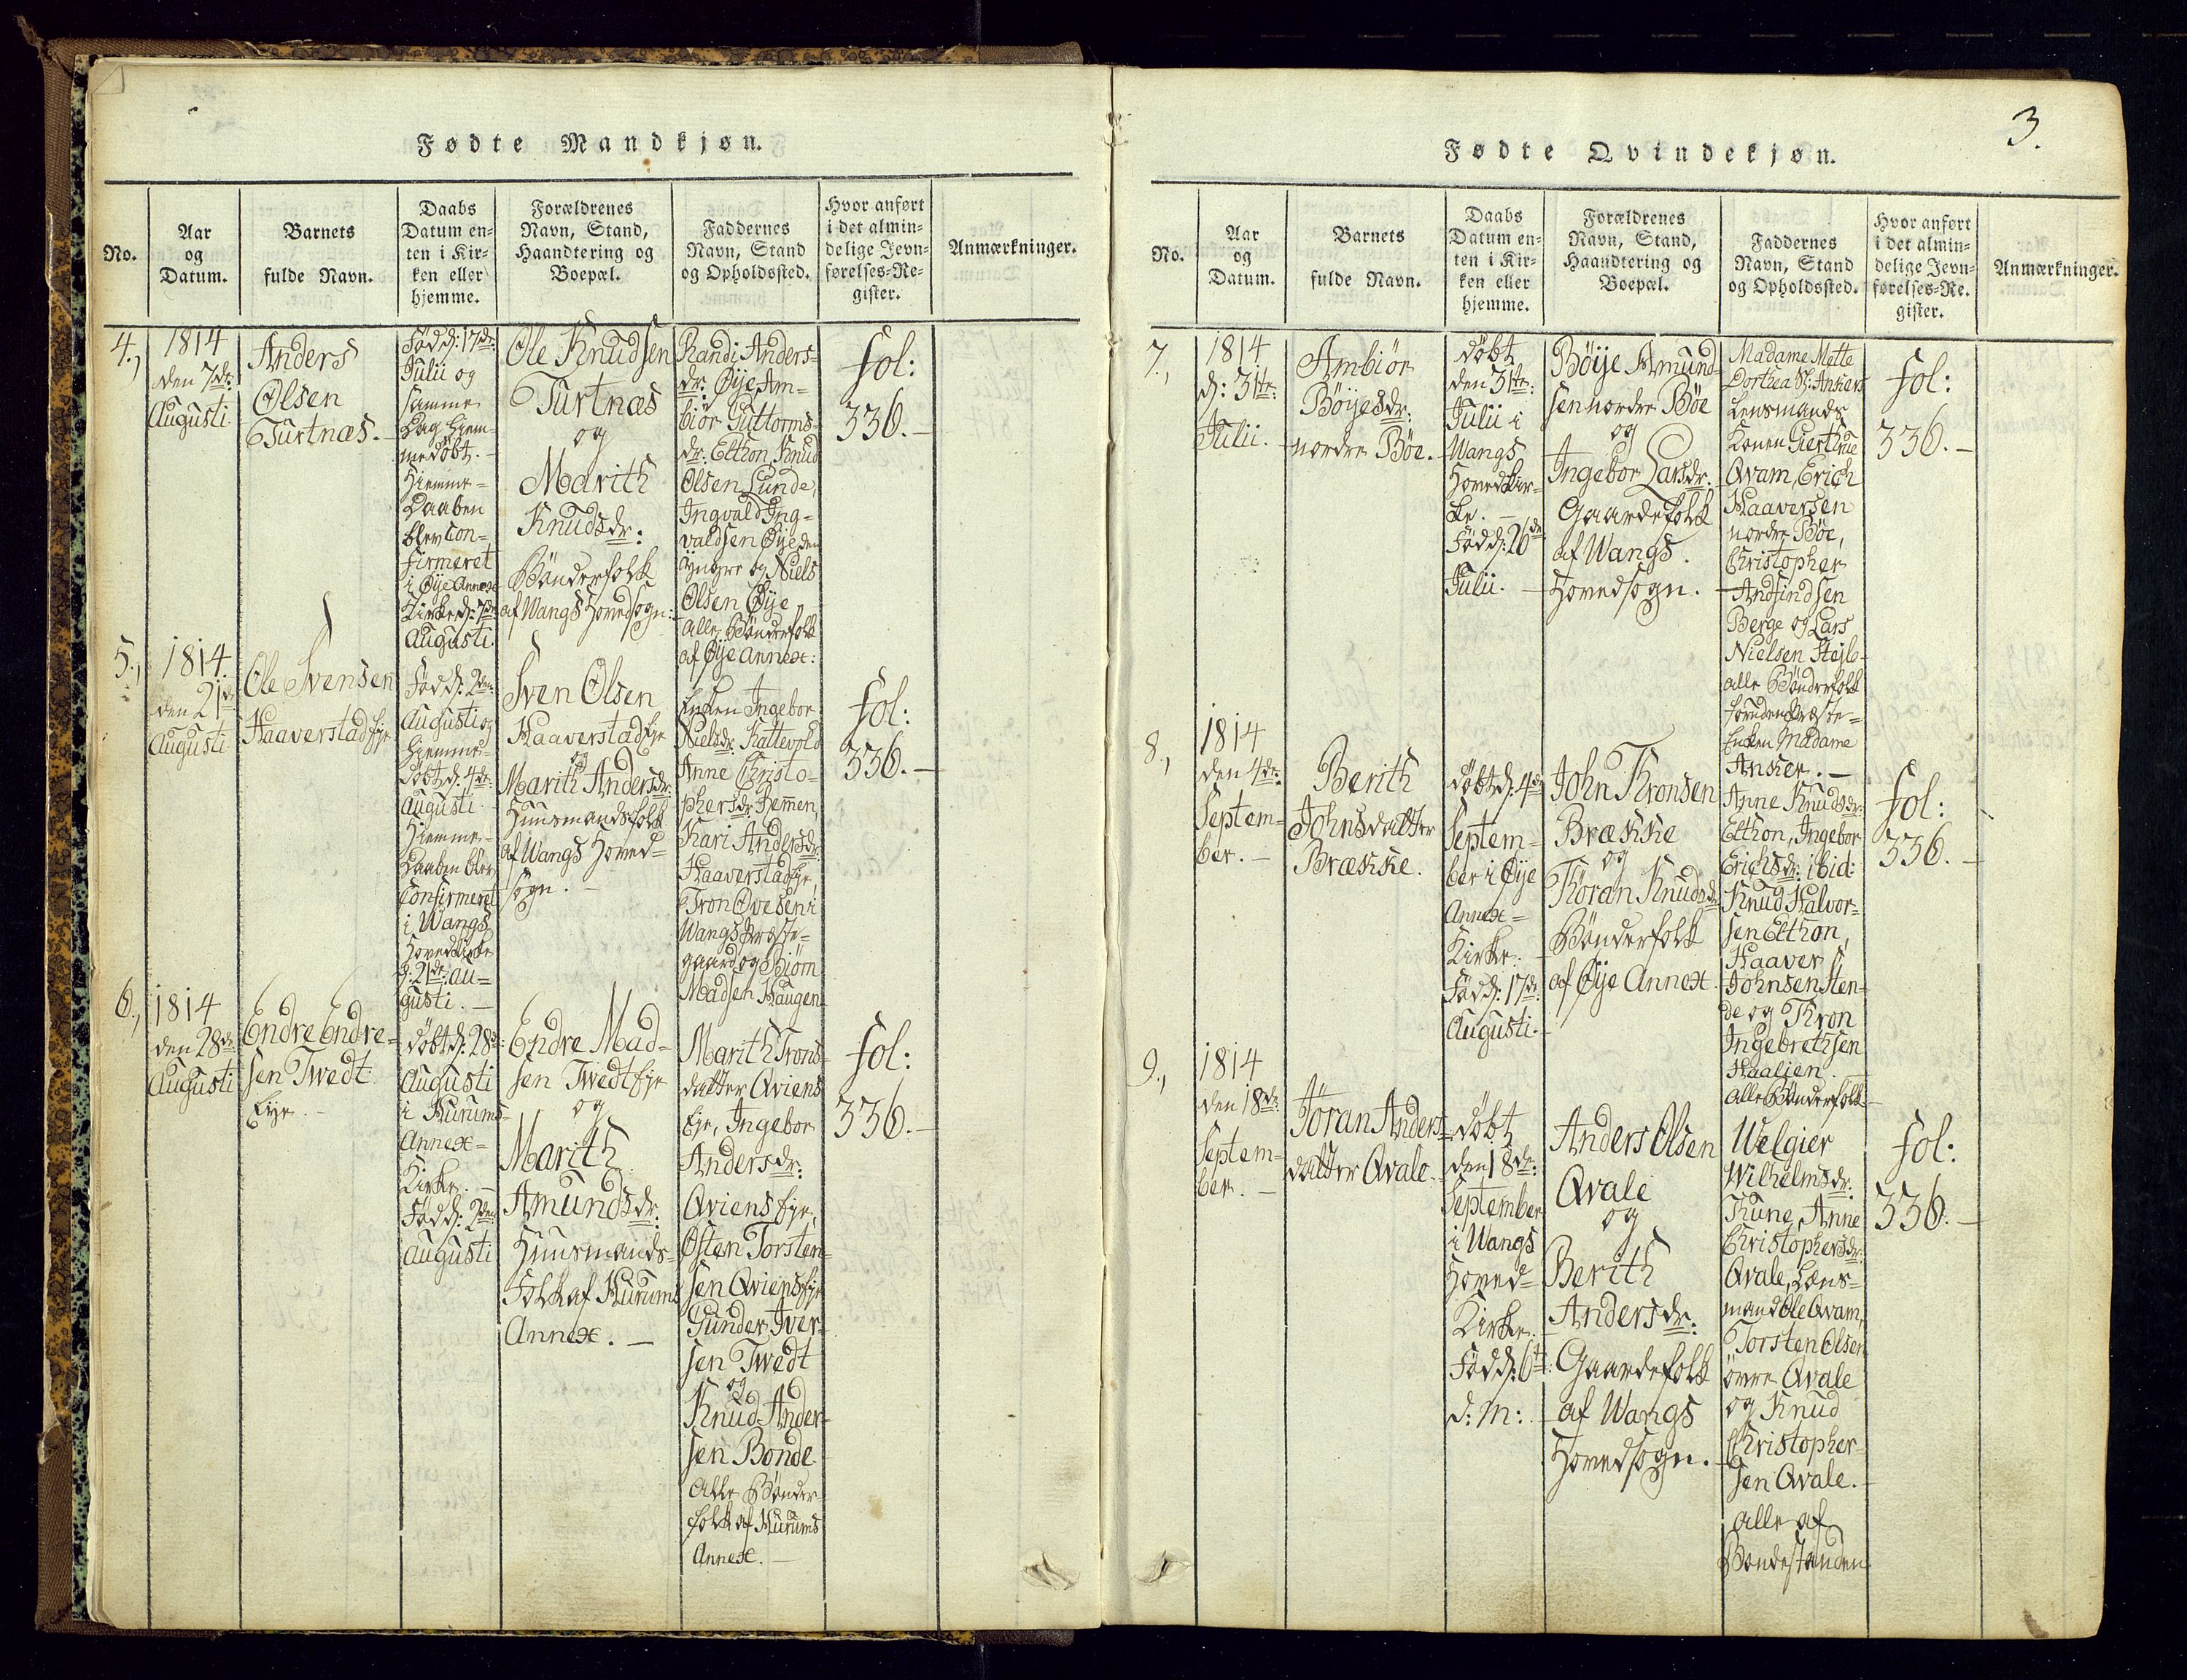 Fødte Mandkjøn.
No.
Aar
og
Datum.
Barnets
fulde Navn.
Daabs
Datum en-
ten i Kir-
ken eller
hjemme.
Forældrenes
Navn, Stand,
Haandtering og
Boepæl.
Faddernes
Navn, Stand
og Opholdssted.
Hvor anført
i det almin-
delige Jevn-
førelses-Re-
gister.
Anmærkninger.
4.,
1814
den 7de
Augusti
Anders
Olsen
Turtnæs.
Föd d: 17de
Julii og
samme
Dag hiem-
medöbt. -
Hiemme-
Daaben
blev Con-
firmeret
i Øye Annex
Kirke d: 7de
Augusti.
Ole Knudsen
Turtnæs
og
Marith
Knudsdr:
Bönderfolk
af Wangs Hovedsogn:
Randi Anders-
dr: Øye, Am-
biör Guttorms-
dr: Elthon, Knud
Olsen Lunde,
Ingvald Ing-
valdsen Øye den
yngre og Niels
Olsen Øye,
alle Bönderfolk
af Øye Annex:
fol:
336. -
5.,
1814.
den 21de
Augusti
Ole Svensen
Haaverstad Eje
Föd d: 2den
Augusti og
hiemme-
döbt d: 4de
Augusti.
Hiemme-
Daaben blev
Confirmeret
i Wangs
Hovedkirke
d: 21de Au-
gusti. -
Sven Olsen
Haaverstad Eje
og
Marith Andersdr:
Huusmandsfolk
af Wangs Hoved-
sogn. -
Enken Ingebor
Nielsdr: Kattevold
Anne Christo-
phersdr: Hemen,
Kari Andersdr:
Haaverstad Eje,
Tron Ovesen i
Wangs Præste-
gaard og Biörn
Madsen Haugen
fol:
336. -
6.,
1814
den 28de
Augusti
Endre Endre-
sen Twedt
Eye. -
döbt d: 28de:
Augusti
i Hurums
Annex-
Kirke. -
Föd d: 2den
Augusti
Endre Mad-
sen Twedt Eje
og
Marith
Amundsdr:
Huusmands-
Folk af Hurums
Annex. -
Marith Trons-
datter Qviens
Eje, Ingebor
Andersdr:
Qviens Eje,
Østen Torsten-
sen Qviens Eje
Gunder Iver-
sen Twedt
og
Knud Ander-
sen Bonde
Alle Bönder-
folk af Hurums
Annex. -
fol:
336. -
3.
Fødte Qvindekjøn.
No.
Aar
og
Datum.
Barnets
fulde Navn.
Daabs
Datum en-
ten i Kir-
ken eller
hjemme.
Forældrenes
Navn, Stand,
Haandtering og
Boepæl.
Faddernes
Navn, Stand
og Opholdssted.
Hvor anført
i det almin-
delige Jevn-
førelses-Re-
gister.
Anmærkninger.
7.,
1814
d: 31te:
Julii. -
Ambiör
Böyesdr:
nordre Böe.
döbt
den 31te:
Julii i
Wangs
Hovedkir-
ke. -
Föd d: 26de
Julii. -
Böije Amund-
sen nordre Böe
og
Ingebor Larsdr:
Gaardefolk
af Wangs
Hovedsogn. -
Madame Mette
Dorthea Sl: Ankers
Lensmands
Konen Giertrue
Qvam, Erich
Haaversen
nordre Böe,
Christopher
Andfindsen
Berge og Lars
Nielsen Stejle
alle Bönderfolk
foruden Præste-
Enken Madame
Anker. -
fol:
336. -
8.,
1814
den 4de
Septem-
ber. -
Berith
Johnsdatter
Brække.
döbt d: 4de
Septem-
ber i Øye
Annex-
Kirke. -
Föd d: 17de:
Augusti. -
John Thronsen
Brække
og
Töran Knudsdr
Bönderfolk
af Øye Annex.
Anne Knudsdr:
Elthon, Ingebor
Erichsdr: ibid:
Knud Halvor-
sen Elthon,
Haaver
Johnsen Sten-
de og Thron
Ingebrethsen
Haalien. -
alle Bönderfolk
fol:
336. -
9.,
1814
den 18de
Septem-
ber. -
Jöran Anders-
datter Qvale.
döbt
den 18de:
September
i Wangs
Hoved-
Kirke.
Föd d: 6te:
d: m:
Anders Olsen
Qvale
og
Berith
Andersdr:
Gaardefolk
af Wangs
Hovedsogn. -
Welgier
Wilhelmsdr:
Kune, Anne
Christophersdr:
Qvale, Læns-
mand Ole Qvam,
Torsten Olsen
övre Qvale
og Knud
Christopher-
sen Qvale. -
alle af
Bondestanden
fol:
336. -